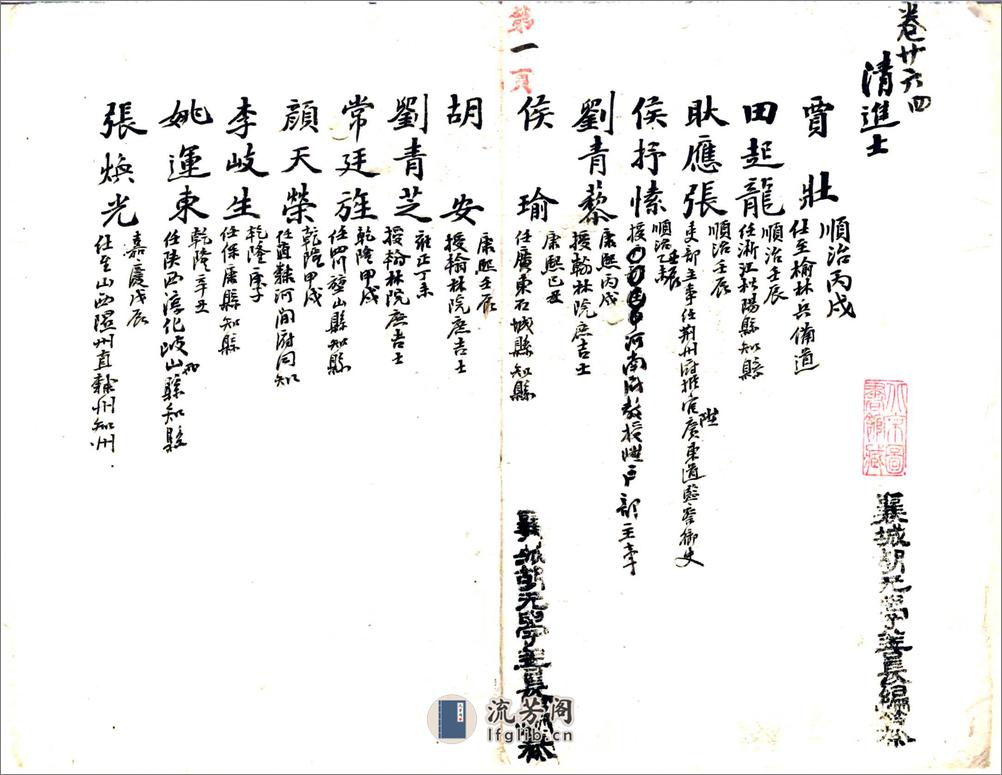 卷廿六四
清進士
賈壯 順治丙戌 任至榆林兵備道
田起龍 順治壬辰 任浙江松陽縣知縣
耿應張 順治壬辰 吏部主事任荊州府推官陞廣東道監察御史
侯抒愫 順治乙未 壬辰 授河南府教授陞戶部主事
劉青藜 康熙丙戌 授翰林院庶吉士
侯瑜 康熙己丑 任廣東石城縣知縣
第一頁
胡安 康熙壬辰 授翰林院庶吉士
劉青芝 雍正丁未 授翰林院庶吉士
常廷旌 乾隆甲戌 任四川璧山縣知縣
顏天榮 乾隆甲戌 任直隸河間府同知
李岐生 乾隆庚子 任保康縣知縣
姚運東 乾隆辛丑 任陝西淳化岐山兩縣知縣
張煥光 嘉慶戊辰 任至山西隰州直隸州知州
襄城胡元學善長編
襄城胡元學善長編
流芳阁
lfglib.cn